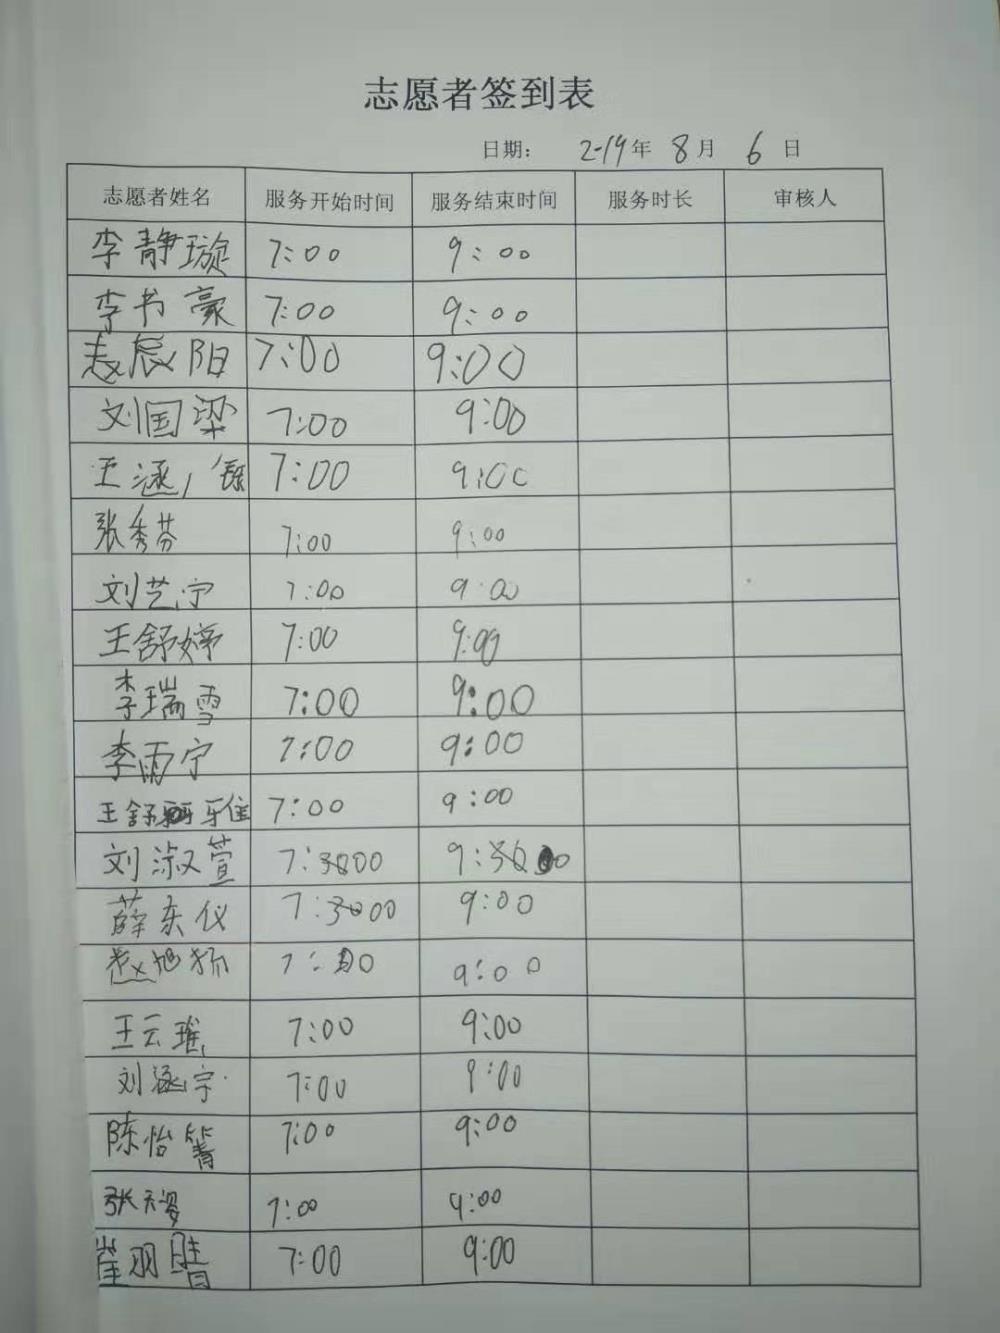 志愿者签到表
日期： 2-19年 8月 6日
志愿者姓名 服务开始时间 服务结束时间 服务时长 审核人
李静璇 7:00 9:00
李书豪 7:00 9:00
赵辰阳 7:00 9:00
刘国梁 7:00 9:00
王涵 7:00 9:00
张秀芬 7:00 9:00
刘艺宁 7:00 9:00
王舒婷 7:00 9:00
李瑞雪 7:00 9:00
李雨宁 7:00 9:00
王舒雅 7:00 9:00
刘淑萱 7:00 9:00
薛东仪 7:00 9:00
赵旭扬 7:00 9:00
王云瑶 7:00 9:00
刘涵宇 7:00 9:00
陈怡箐 7:00 9:00
张天 7:00 9:00
崔羽晴 7:00 9:00